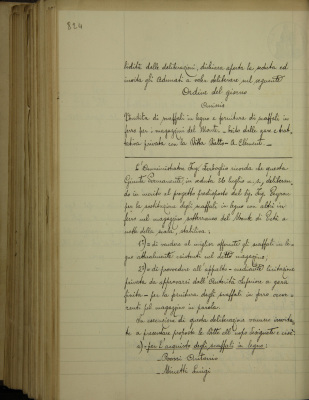 824
lidità delle deliberazioni, dichiara aperta la seduta ed
invita gli Adunati a voler deliberare sul seguente
Ordine del giorno
Omissis
Vendita di scaffali in legno e fornitura di scaffali in
ferro per i magazzini del Monte. Esito delle gare e trat-
tativa privata con la Ditta
L'Amministratore Ing. ricorda che questa
Giunta Permanente, in seduta 26 luglio u.s., deliberan-
do in merito al progetto predisposto dal Sig. Ing.
per la sostituzione degli scaffali in legno con altri in
ferro nel magazzino sotterraneo del Monte di Pietà a
notte della scala, stabiliva:
1°) di vendere al miglior offerente gli scaffali in le-
gno attualmente esistenti nel detto magazzino;
2°) di procedere all'appalto - mediante licitazione
privata da approvarsi dall'Autorità Superiore a gara
finita - per la fornitura degli scaffali in ferro occor-
renti pel magazzino in parola.
In esecuzione di questa deliberazione vennero invita-
te a presentare proposte le Ditte all'uopo designate e cioè:
a) per l'acquisto degli scaffali in legno:
Antonio
Minetti Luigi